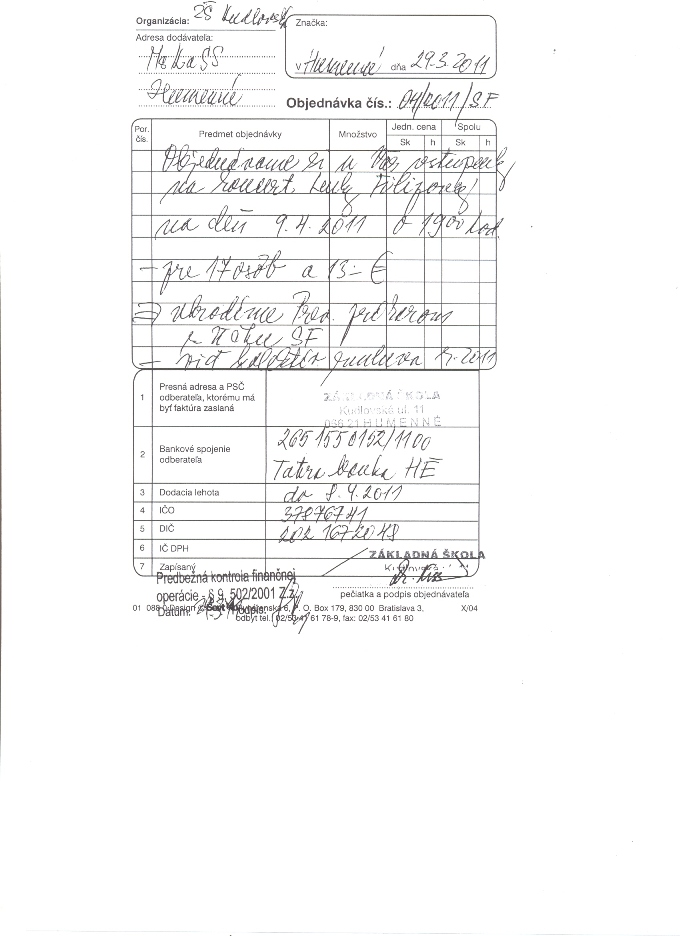 Organizácia: ZŠ Kudlovská
Značka:
Adresa dodávateľa:
MsKaSS
Humenné
V Humenné dňa 29.3.2011
Objednávka čís.: 04/2011/SF
Por. čís. Predmet objednávky Množstvo Jedn. cena Spolu
Sk h Sk h
Objednávame si u Vás vstupenky
na koncert Lenky Filipovej
na deň 9.4.2011 o 19 00 hod
– pre 17 osôb a 13.- €
uhradíme prev. príkazom
z SF
– viď zmluva r. 2011
1 Presná adresa a PSČ
odberateľa, ktorému má
byť faktúra zaslaná
ZÁKLADNÁ ŠKOLA
Kudlovská ul. 11
066 21 HUMENNÉ
2 Bankové spojenie
odberateľa
265 155 0152/1100
Tatra banka HE
3 Dodacia lehota do 8.4.2011
4 IČO 37876741
5 DIČ 202 1672048
6 IČ DPH
ZÁKLADNÁ ŠKOLA
7 Zapísaný
Predbežná kontrola finančnej
operácie - § 9, 502/2001 Z.z.
pečiatka a podpis objednávateľa
Dátum: Podpis:
P. O. Box 179, 830 00 Bratislava 3, X/04
odbyt tel. 02/53 41 61 78-9, fax: 02/53 41 61 80